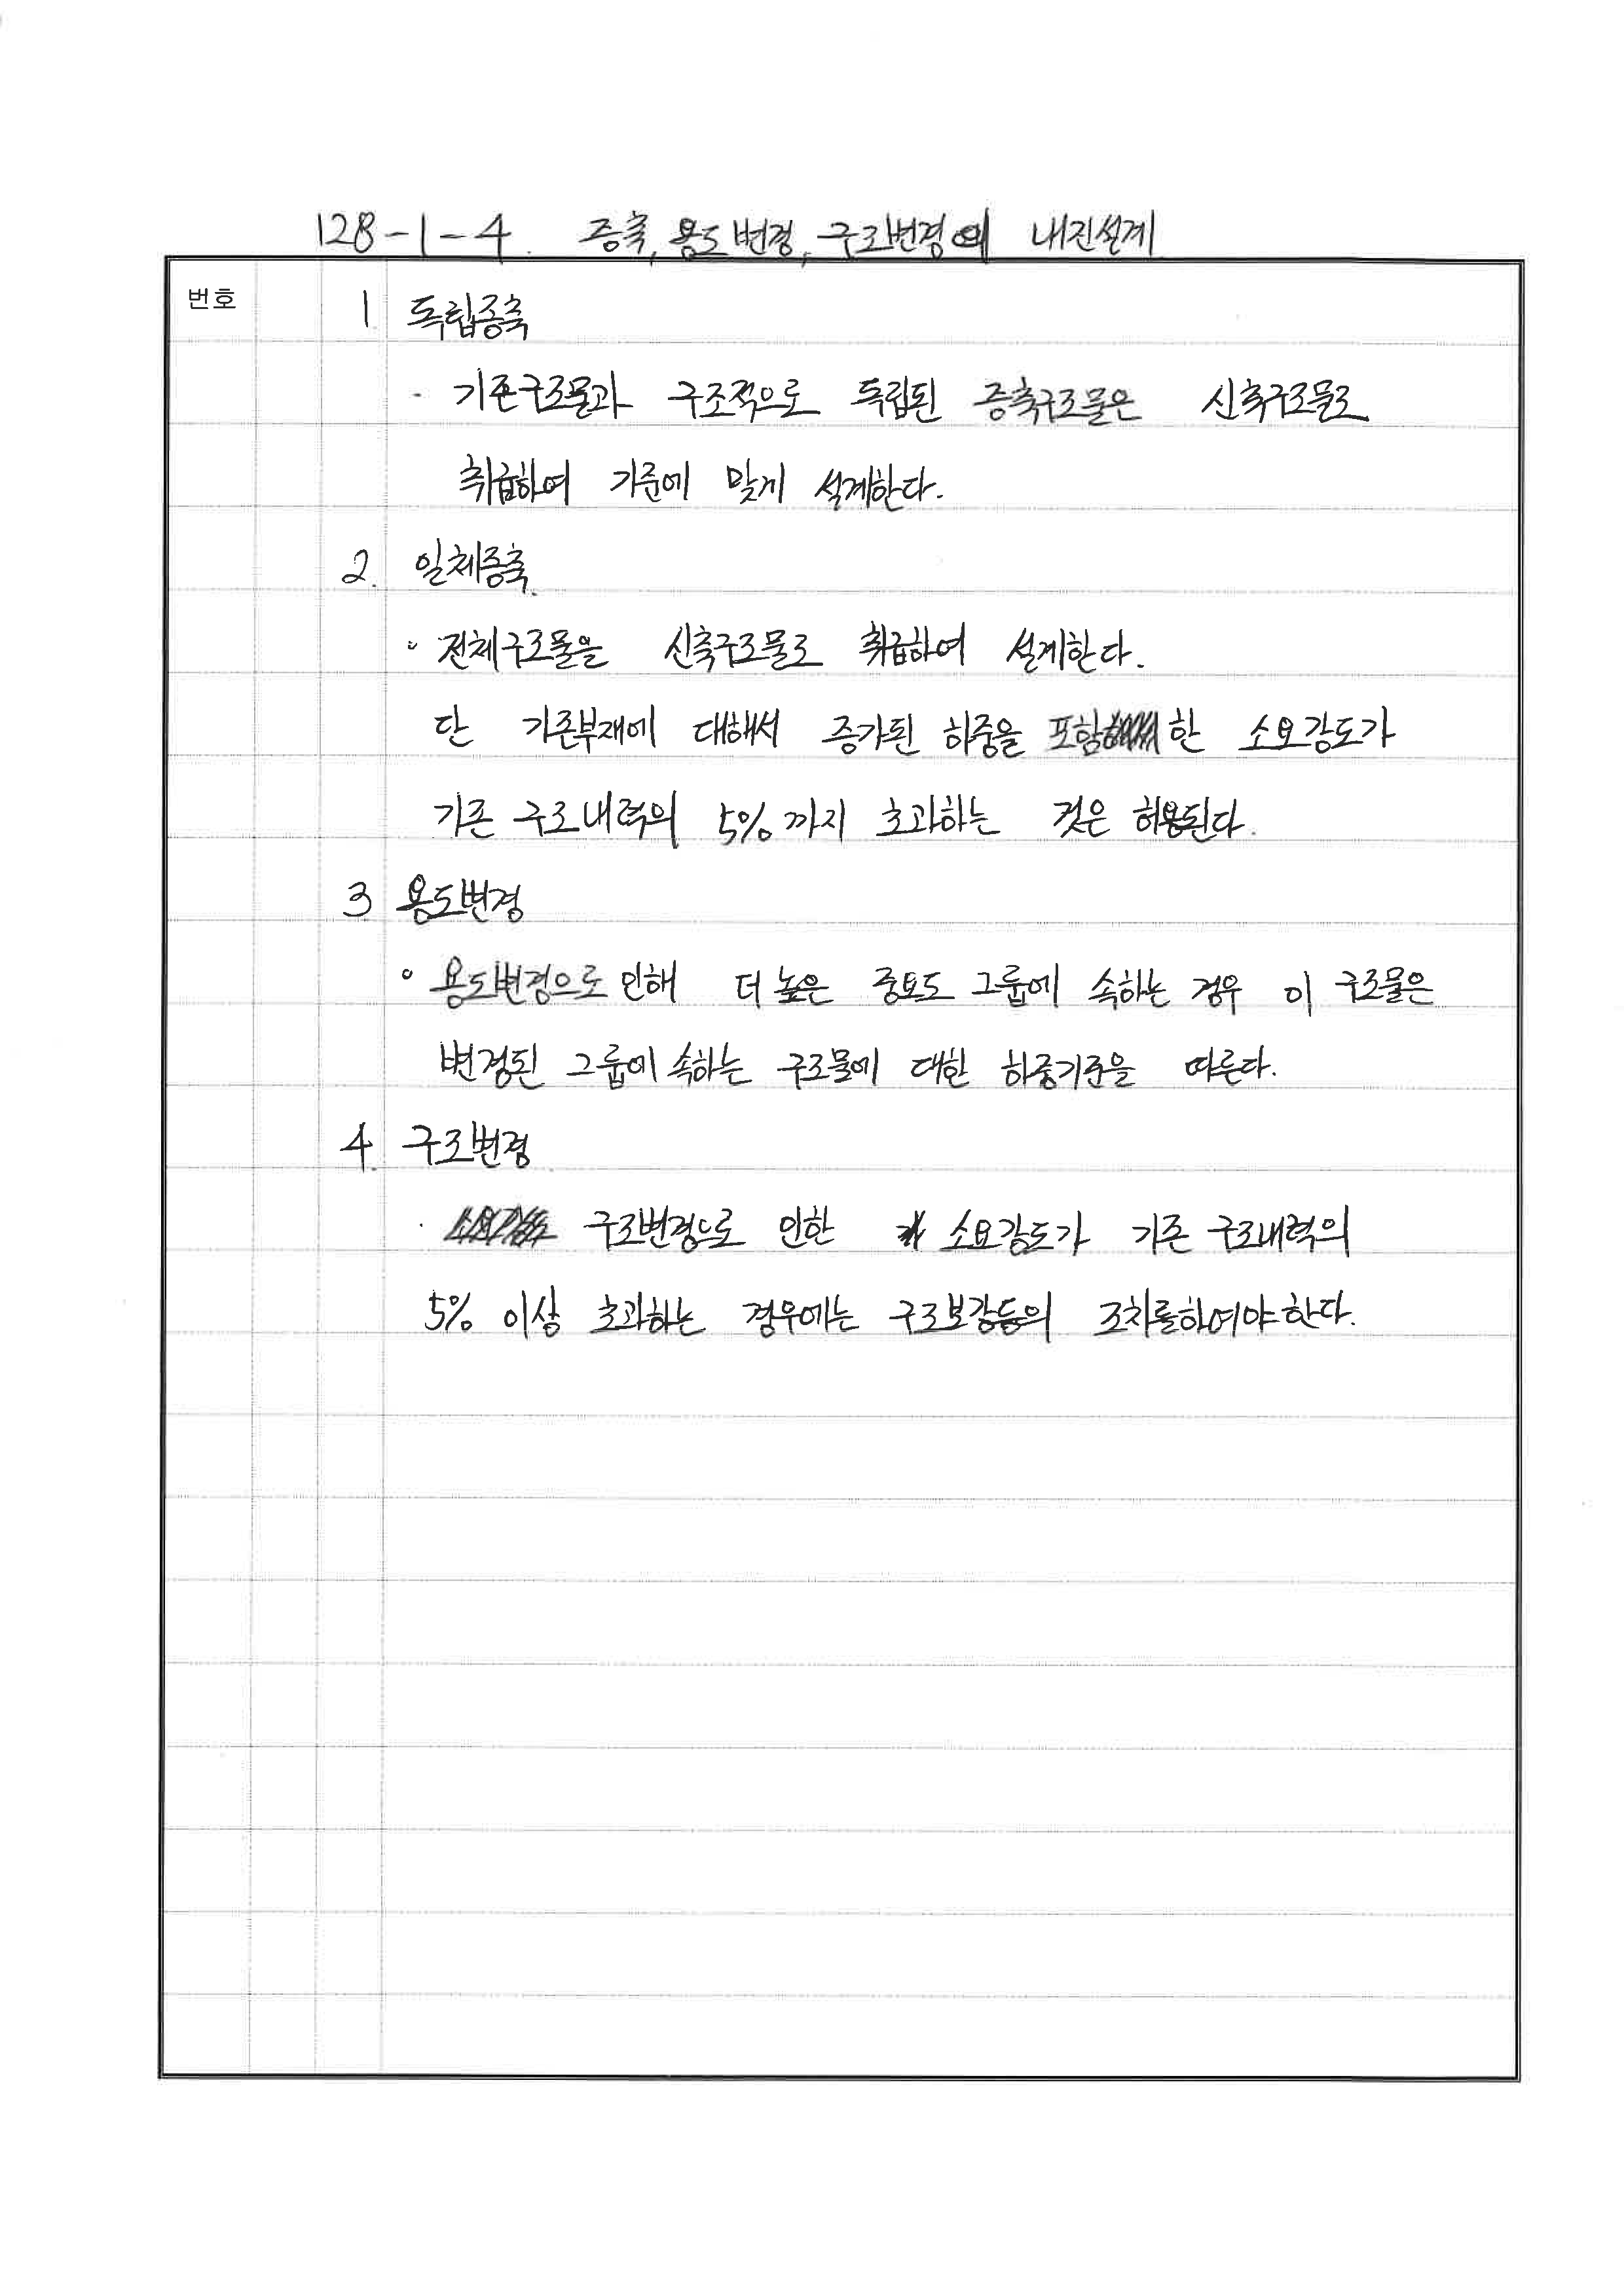 128-1-4. 증축, 용도변경, 구조변경의 내진설계
번호
1 독립증축
· 기존구조물과 구조적으로 독립된 증축구조물은 신축구조물로
취급하여 기준에 맞게 설계한다.
2. 일체증축.
· 전체구조물을 신축구조물로 취급하여 설계한다.
단 기존부재에 대해서 증가된 하중을 포함한 소요강도가
기존 구조내력의 5%까지 초과하는 것은 허용된다.
3 용도변경
· 용도변경으로 인해 더 높은 중요도 그룹에 속하는 경우 이 구조물은
변경된 그룹에 속하는 구조물에 대한 하중기준을 따른다.
4. 구조변경
· 구조변경으로 인한 소요강도가 기존 구조내력의
5% 이상 초과하는 경우에는 구조보강등의 조치를하여야한다.